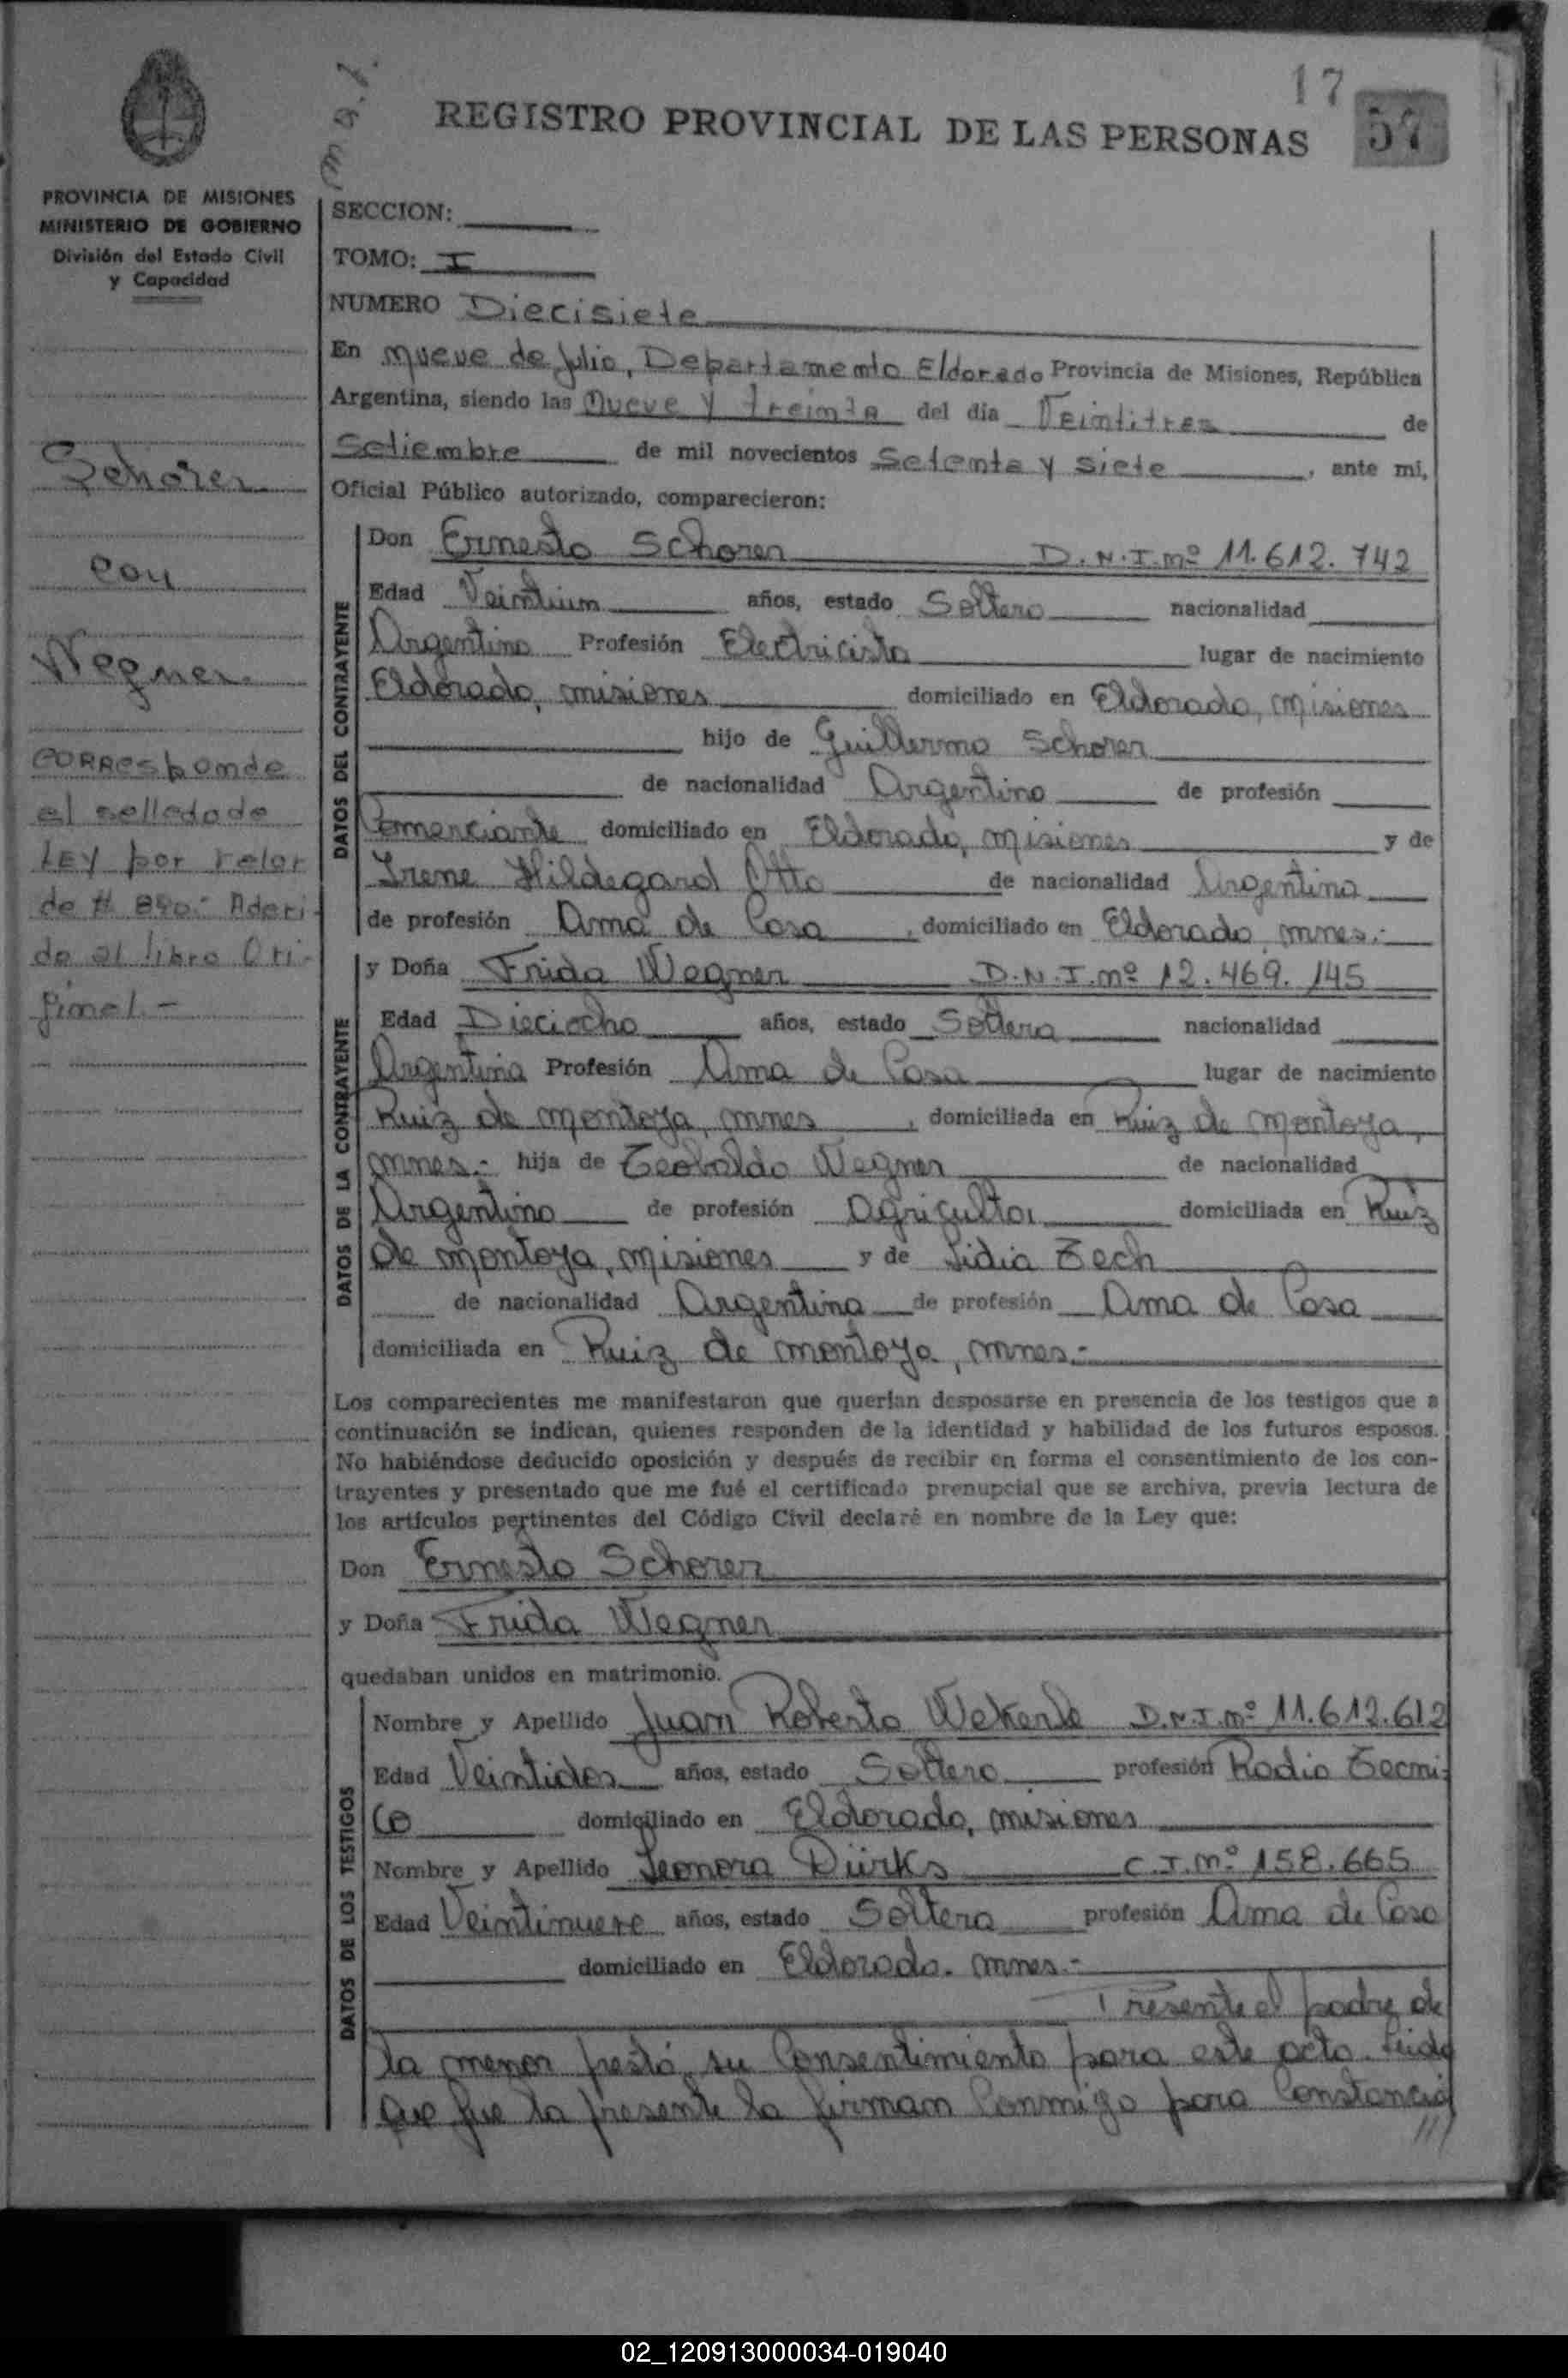 17
57
m a.1.
REGISTRO PROVINCIAL DE LAS PERSONAS
PROVINCIA DE MISIONES
MINISTERIO DE GOBIERNO
División del Estado Civil
y Capacidad
Schorer
con
Wegner.
Corresponde
el sellado de
LEY por valor
de $ 890.- Aderi-
do al libro Ori-
ginal.-
SECCION:
TOMO: I
NUMERO Diecisiete
En nueve de Julio, Departamento Eldorado Provincia de Misiones, República
Argentina, siendo las nueve y treinta del día Veintitres de
Setiembre de mil novecientos Setenta y siete, ante mí,
Oficial Público autorizado, comparecieron:
DATOS DEL CONTRAYENTE
Don Ernesto Schorer D.N.I.nº 11.612.742
Edad Veintiun años, estado Soltero nacionalidad
Argentino Profesión Electricista lugar de nacimiento
Eldorado, misiones domiciliado en Eldorado, misiones
hijo de Guillermo Schorer
de nacionalidad Argentino de profesión
Comerciante domiciliado en Eldorado, misiones y de
Irene Hildegard Otto de nacionalidad Argentina
de profesión Ama de Casa, domiciliado en Eldorado, mnes.-
DATOS DE LA CONTRAYENTE
y Doña Frida Wegner D.N.I.nº 12.469.145
Edad Dieciocho años, estado Soltera nacionalidad
Argentina Profesión Ama de Casa lugar de nacimiento
Ruiz de montoya, mnes, domiciliada en Ruiz de montoya,
mnes.- hija de Teobaldo Wegner de nacionalidad
Argentino de profesión agricultor domiciliada en Ruiz
de montoya, misiones y de Lidia Zech
de nacionalidad Argentina de profesión Ama de Casa
domiciliada en Ruiz de montoya, mnes.-
Los comparecientes me manifestaron que querían desposarse en presencia de los testigos que a
continuación se indican, quienes responden de la identidad y habilidad de los futuros esposos.
No habiéndose deducido oposición y después de recibir en forma el consentimiento de los con-
trayentes y presentado que me fué el certificado prenupcial que se archiva, previa lectura de
los artículos pertinentes del Código Civil declaré en nombre de la Ley que:
Don Ernesto Schorer
y Doña Frida Wegner
quedaban unidos en matrimonio.
DATOS DE LOS TESTIGOS
Nombre y Apellido Juan Roberto Wekerle D.N.I.nº 11.612.612
Edad Veintidos años, estado Soltero profesión Radio Tecni-
co domiciliado en Eldorado, misiones
Nombre y Apellido Leonora Dürks C.I.nº 158.665
Edad Veintinueve años, estado Soltera profesión Ama de Casa
domiciliado en Eldorado. mnes.-
Presente el padre de
la menor prestó su Consentimiento para este acto. Leida
que fue la presente la firman Conmigo para Constancia
///
02_120913000034-019040